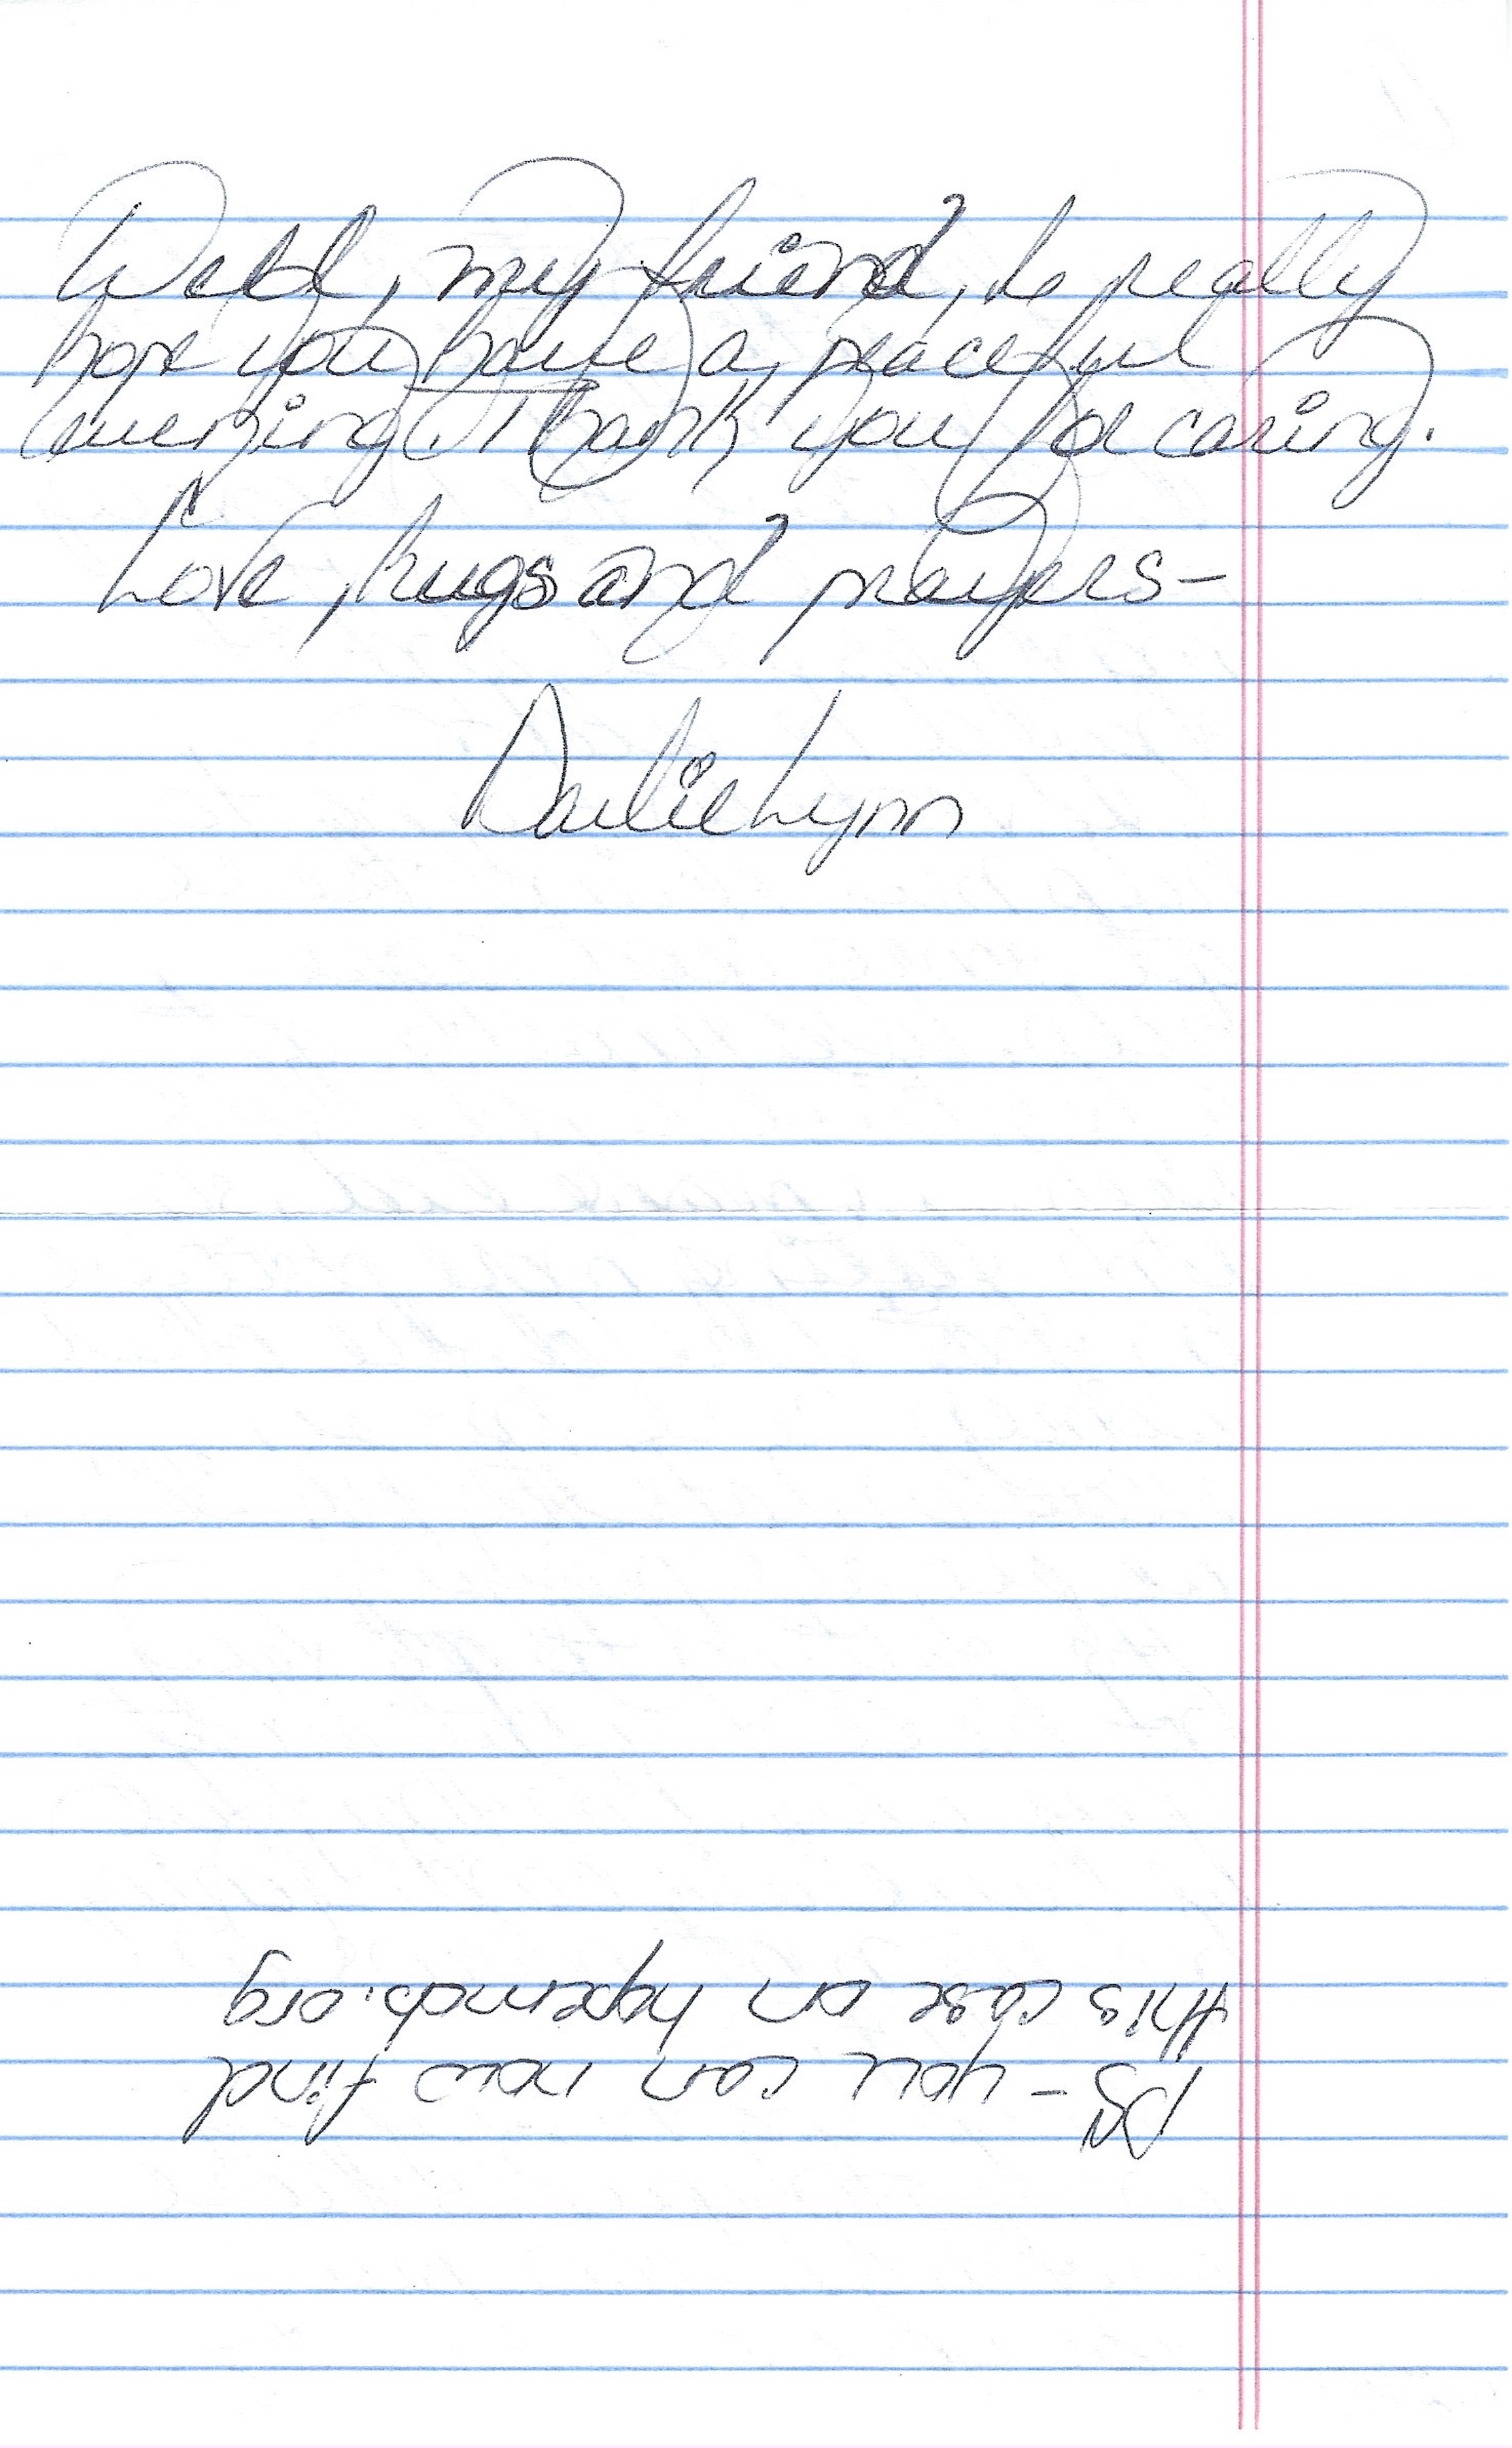 Well, my friend, I really
hope you have a peaceful
evening. Thank you for caring.
Love, hugs and prayers-
Darlie Lynn
PS - you can now find
this case on hopemob.org